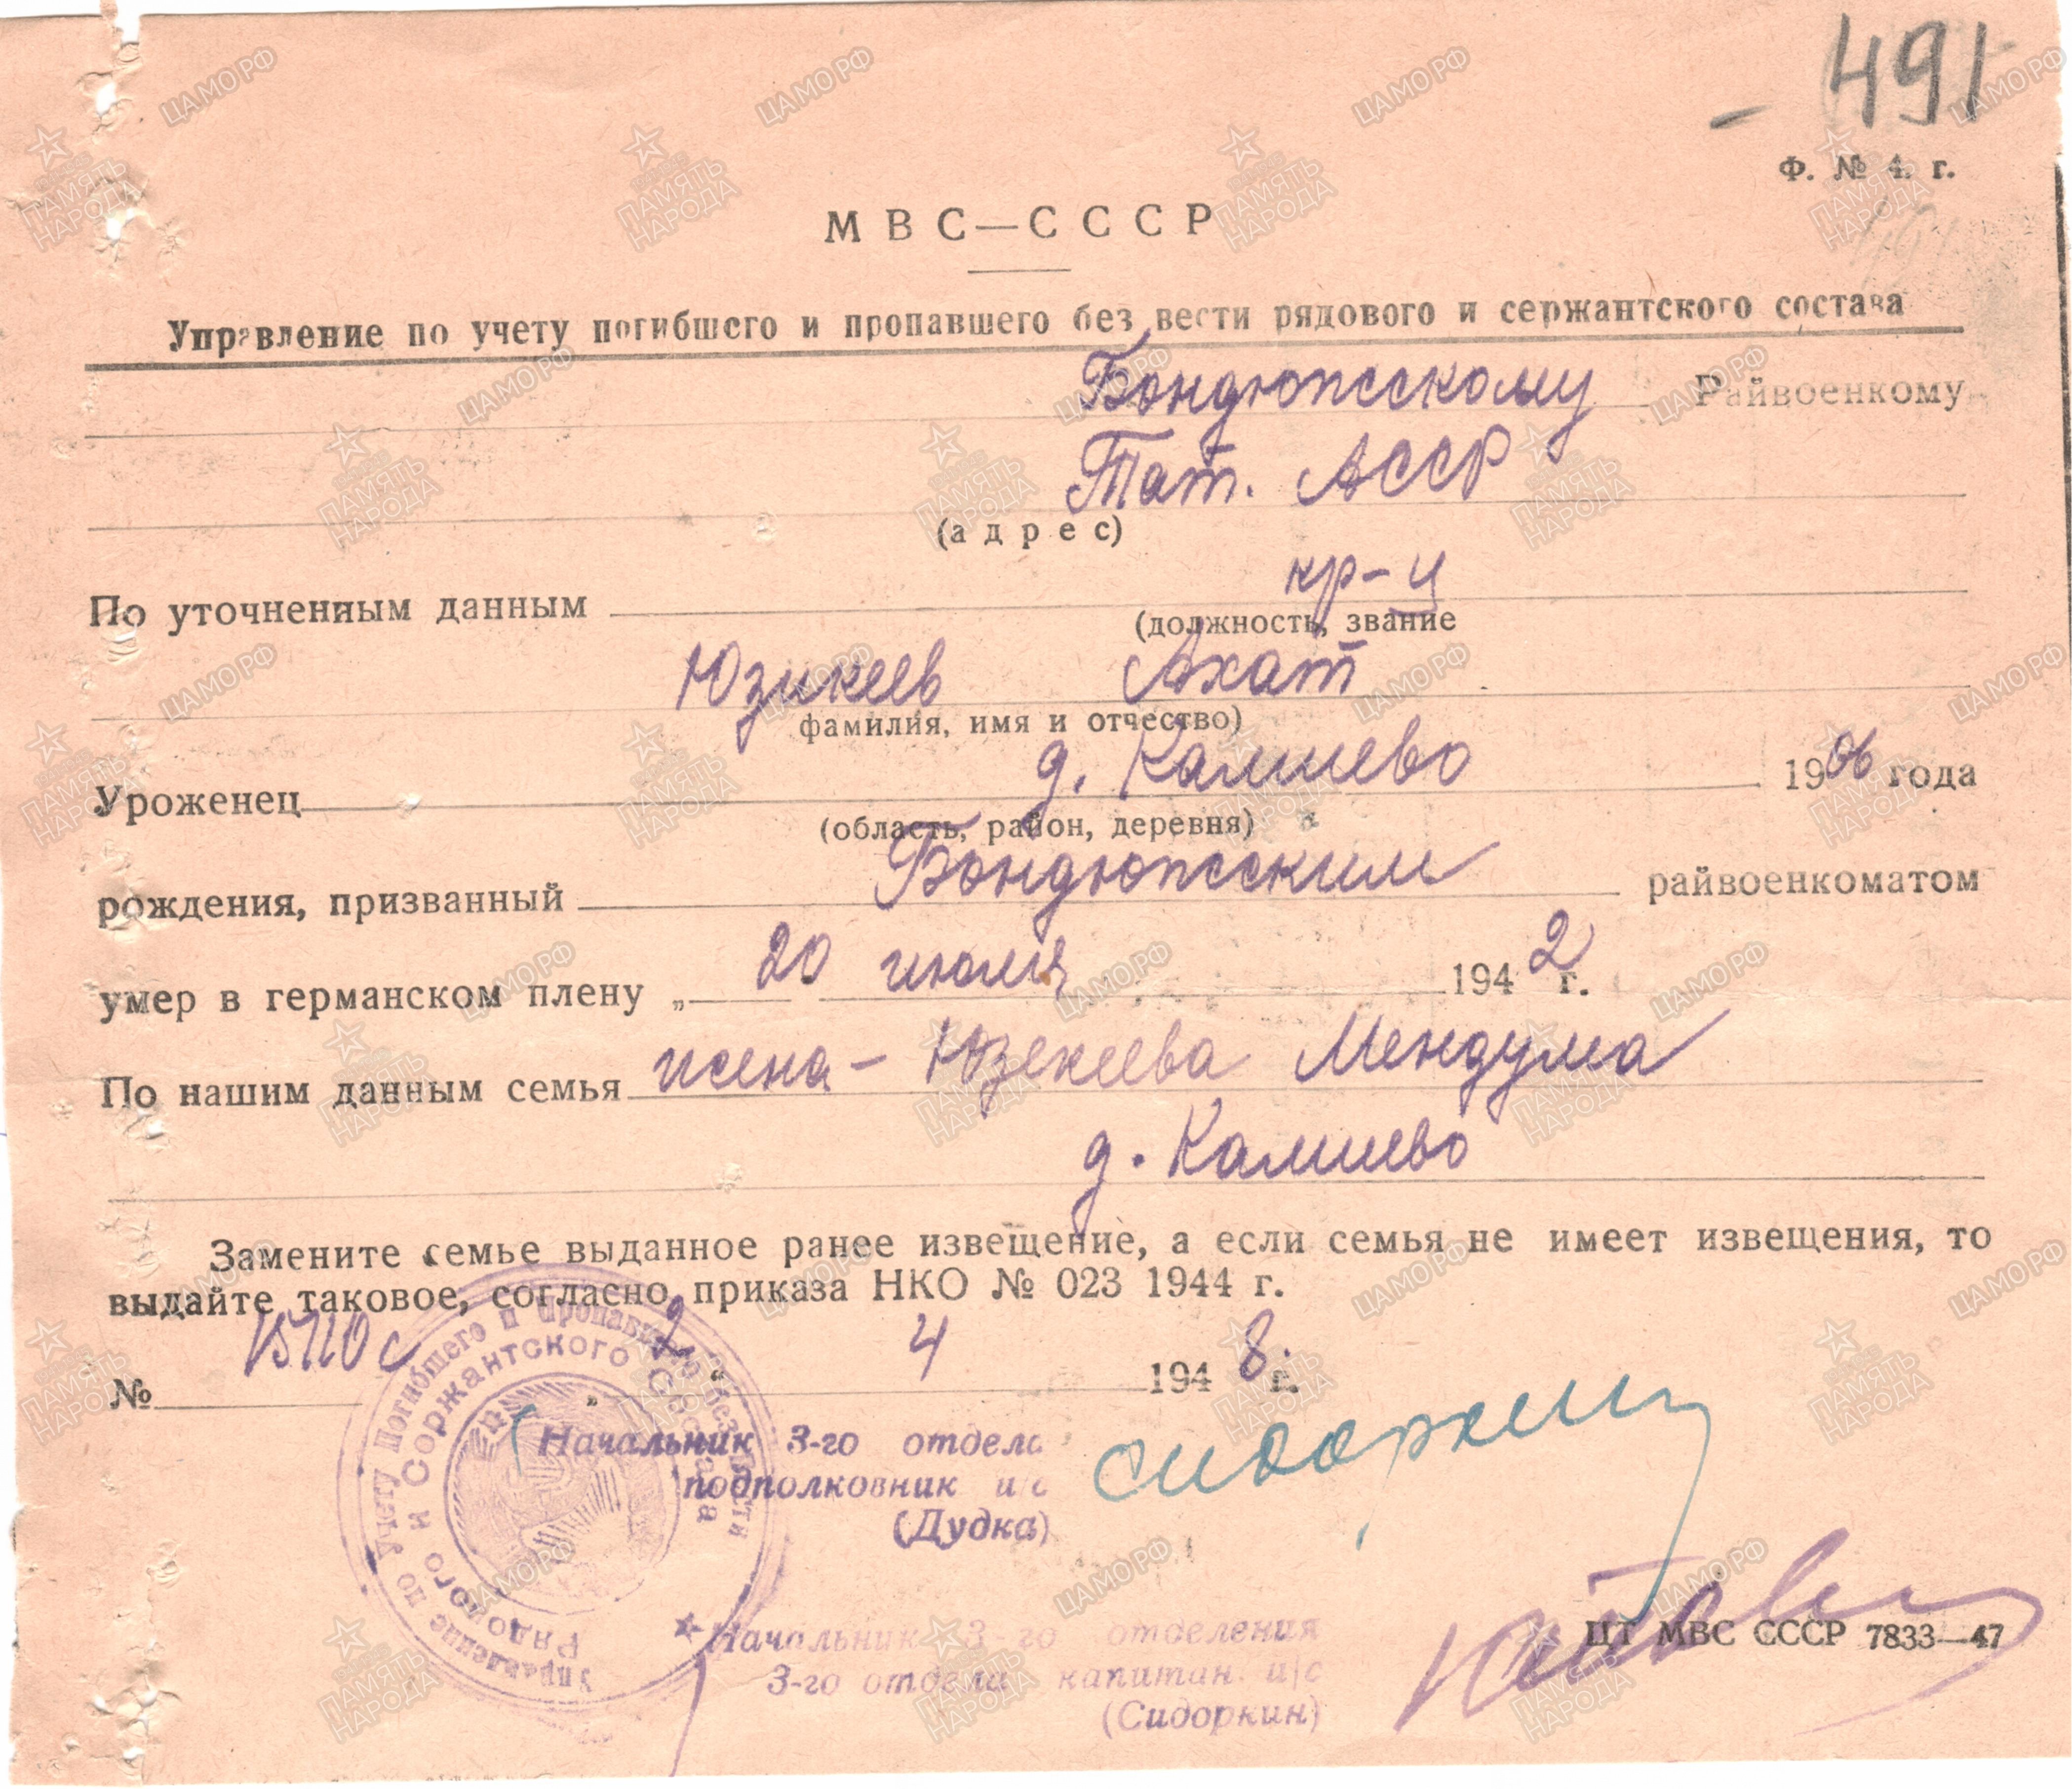 - 491
Ф. № 4. г.
МВС—СССР
Управление по учету погибшего и пропавшего без вести рядового и сержантского состава
Бондюжскому Райвоенкому
Тат. АССР
(адрес)
По уточненным данным кр-ц
(должность, звание
Юзикеев Ахат
фамилия, имя и отчество)
Уроженец д. Камаево 1906 года
(область, район, деревня)
рождения, призванный Бондюжским райвоенкоматом
умер в германском плену „ 20 июля 1942 г.
По нашим данным семья жена - Юзекеева Мендума
д. Камаево
Замените семье выданное ранее извещение, а если семья не имеет извещения, то
выдайте таковое, согласно приказа НКО № 023 1944 г.
№ „ 2 “ 4 1948 г.
Начальник 3-го отдела
подполковник и/с
(Дудка)
Сидоркин
Управление по Учету Погибшего и Пропавшего без вести
Рядового и Сержантского Состава
Начальник 3-го отделения
3-го отдела капитан и/с
(Сидоркин)
ЦТ МВС СССР 7833—47
ПАМЯТЬ НАРОДА
ЦАМО РФ